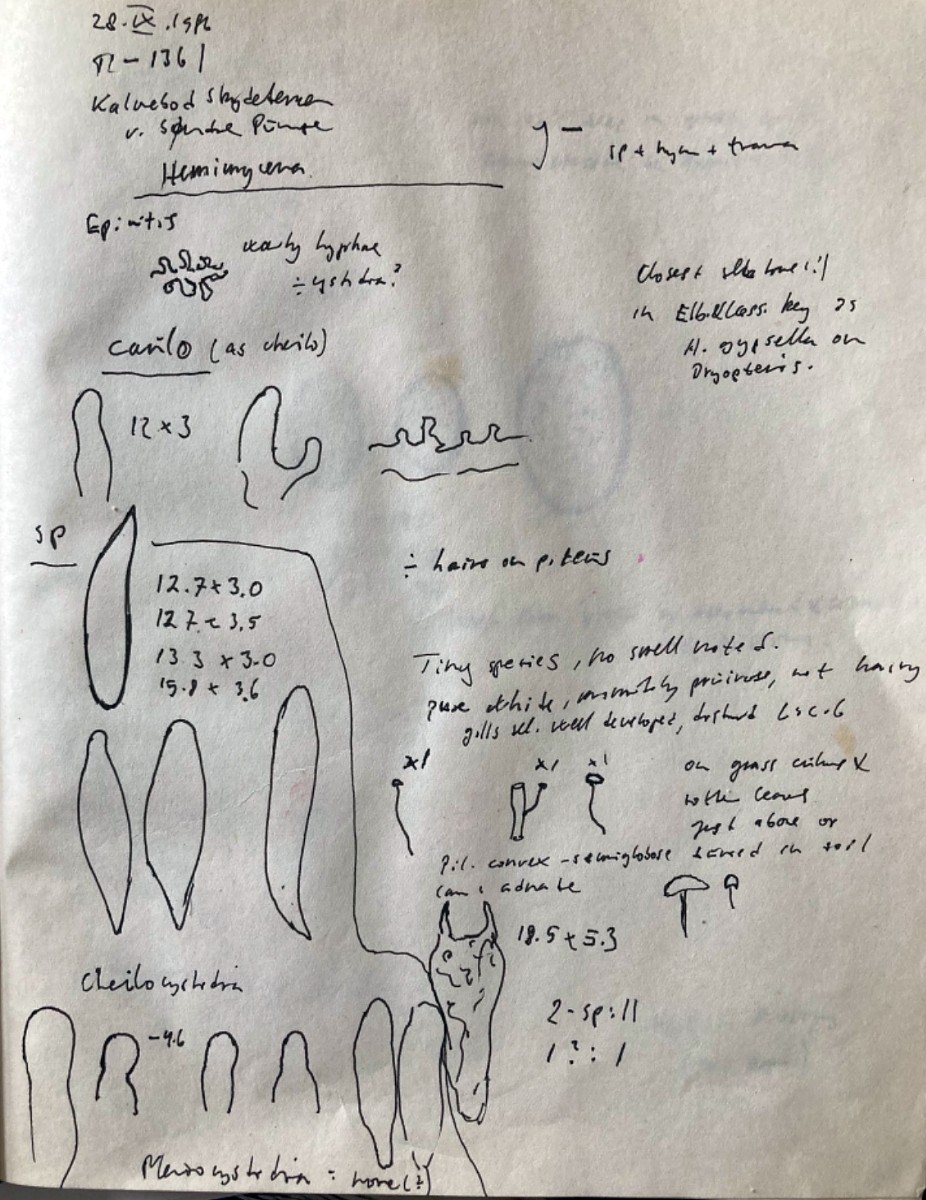 28.IX.1992
π - 1361
Kalvebod Skydeterræn
v. Søndre Pumpe
Hemimycena
J -
sp + hym + trama
Epicutis
hyphae
÷ cystidia?
Closest
in Elb.&Lass. key as
H. gypsella on
Dryopteris.
caulo (as cheilo)
12 × 3
sp
12.7 × 3.0
12.7 × 3.5
13.3 × 3.0
15.8 × 3.6
÷ hairs on pileus
Tiny species, no smell noted.
pure white, pruinose, not hairy
gills well developed, distant L = c. 6
×1
×1
×1
on grass culms &
leaves
just above or
buried in soil
Pil. convex - semiglobose
Lam: adnate
18.5 × 5.3
2-sp: 11
1 ? : 1
Cheilocystidia
-4.6
Pleurocystidia : none (?)